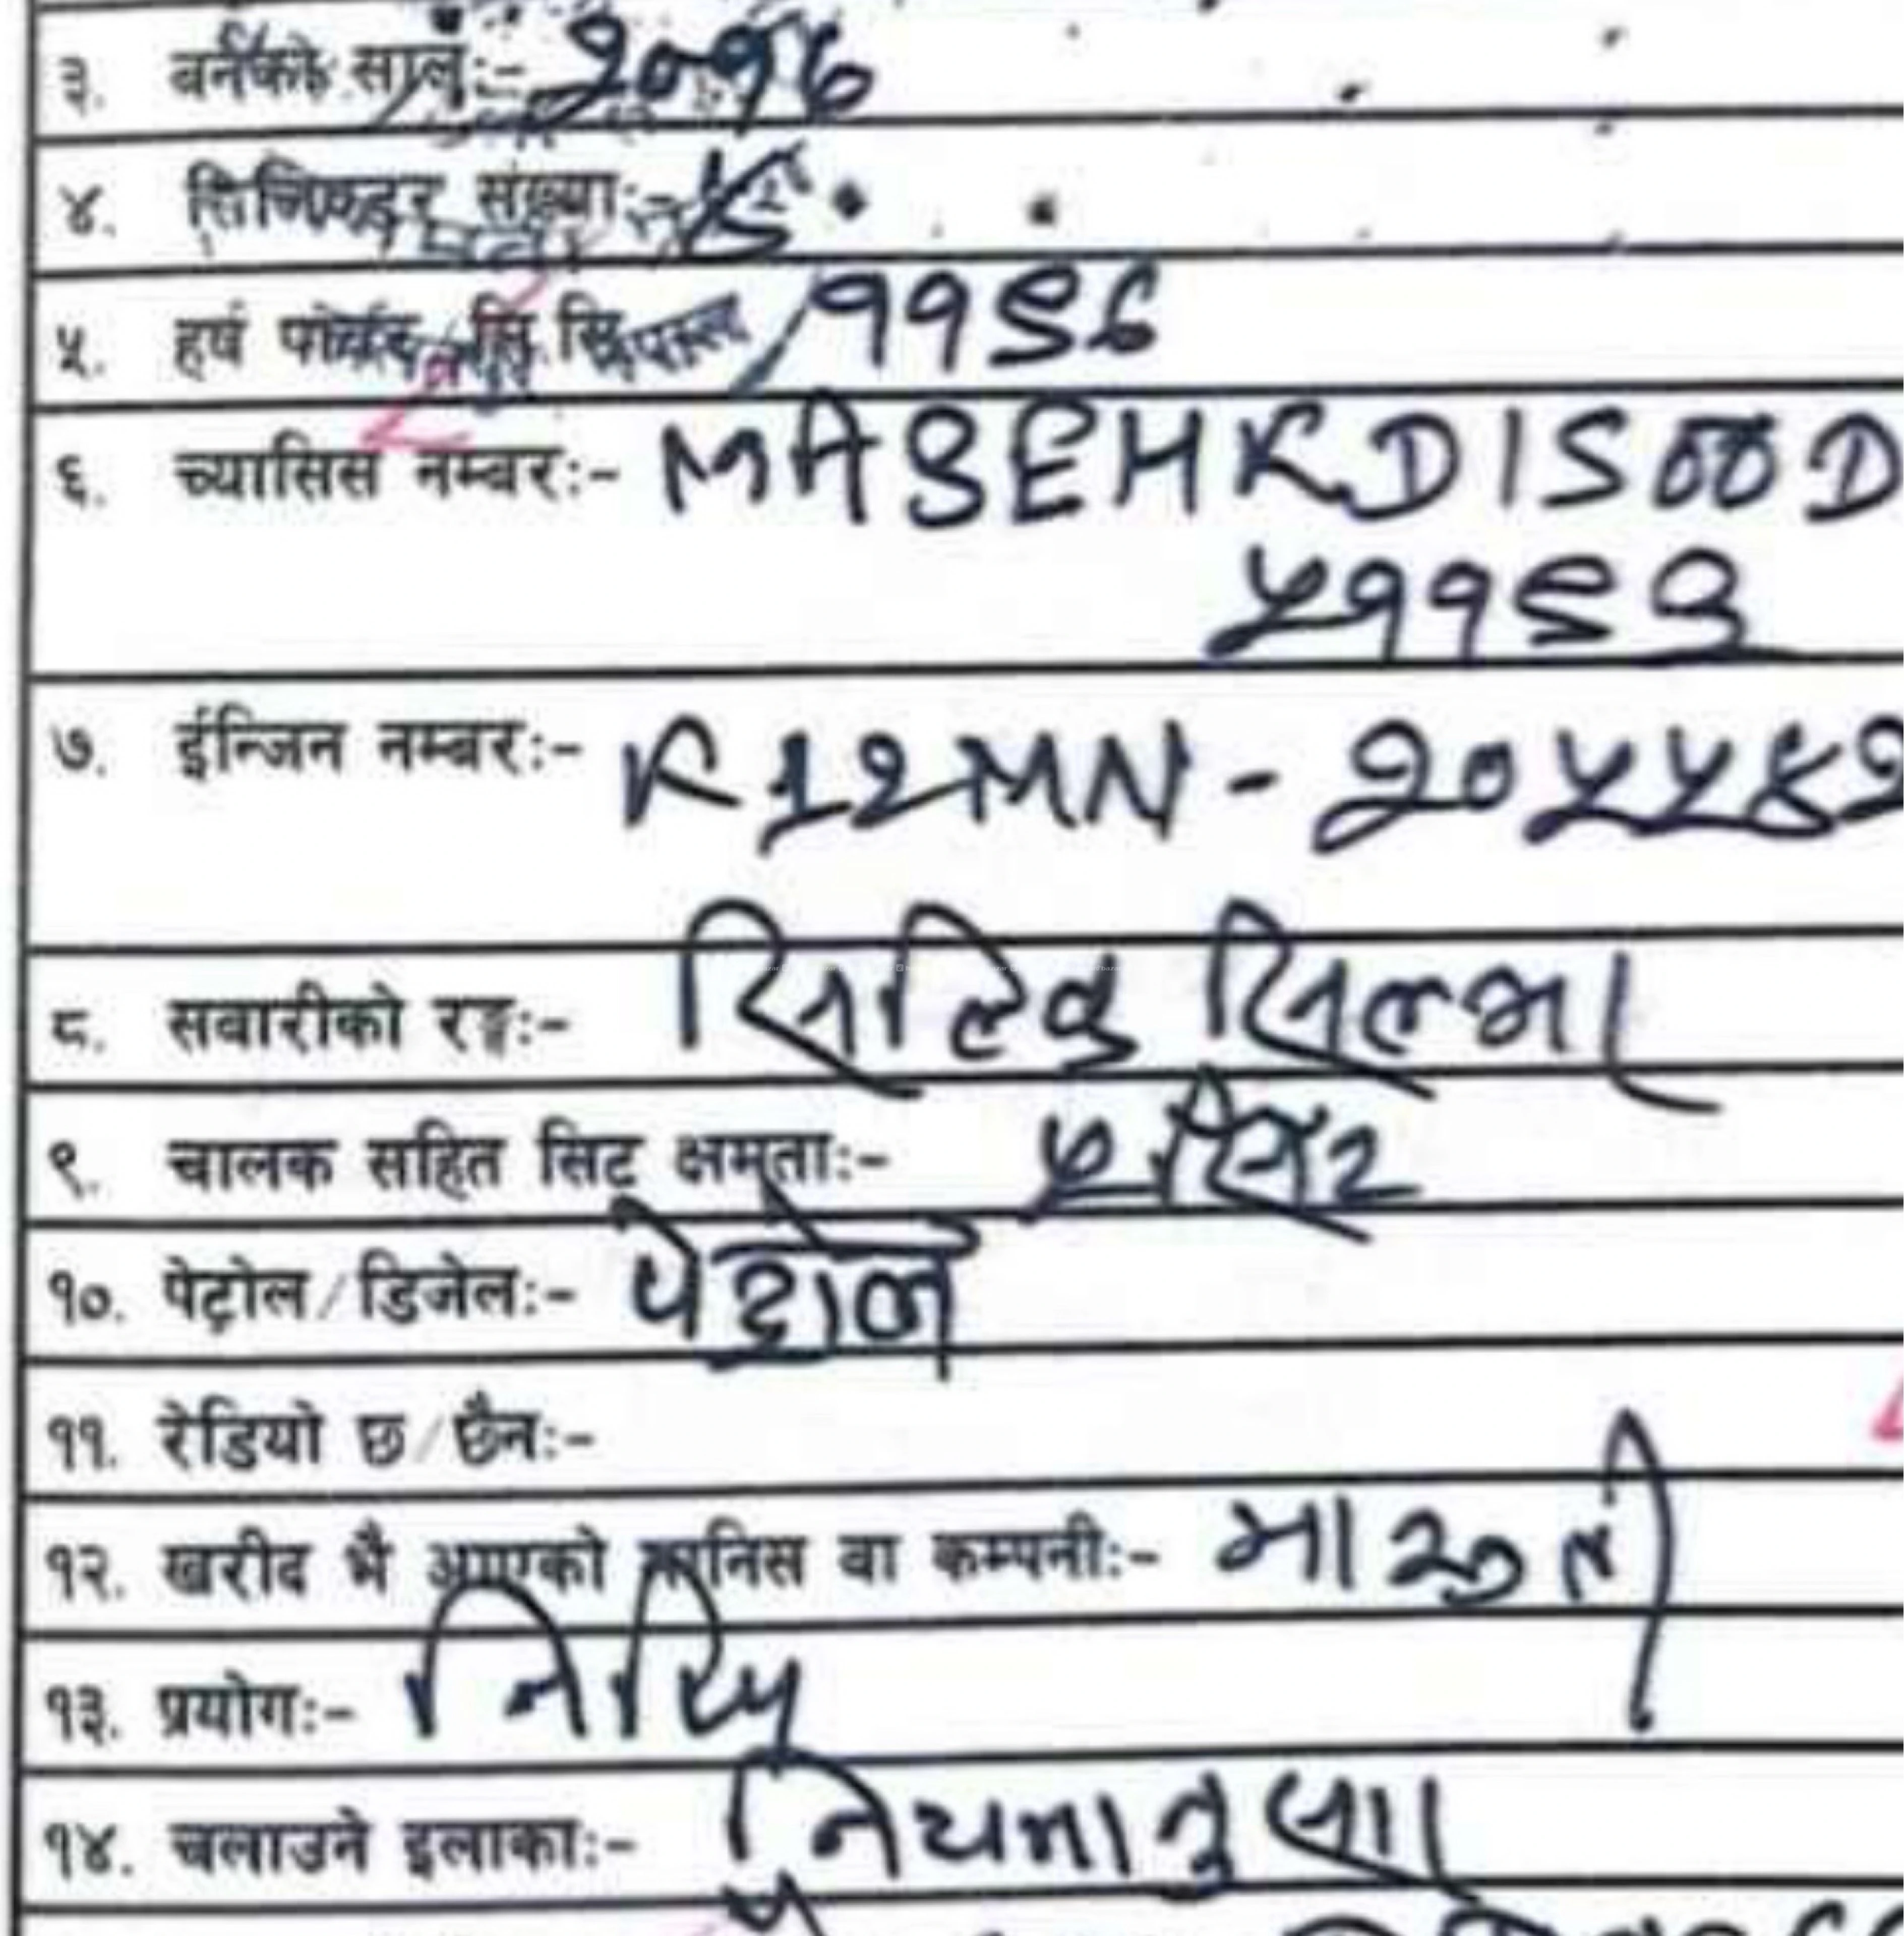 ३. बनेको सालः- २०१६
४. सिलिण्डर संख्याः- ४
५. हर्ष पावर सि.सि. ११९६
६. च्यासिस नम्बरः- MA3EHKD1S00D
५११९३
७. ईन्जिन नम्बरः- K12MN - २०५५४२
८. सवारीको रङ्गः- सिल्कि सिल्भर
९. चालक सहित सिट क्षमताः- ५ सिट
१०. पेट्रोल/डिजेलः- पेट्रोल
११. रेडियो छ/छैनः-
१२. खरीद भै आएको मानिस वा कम्पनीः- मारुती
१३. प्रयोगः- निजि
१४. चलाउने इलाकाः- नियमानुसार